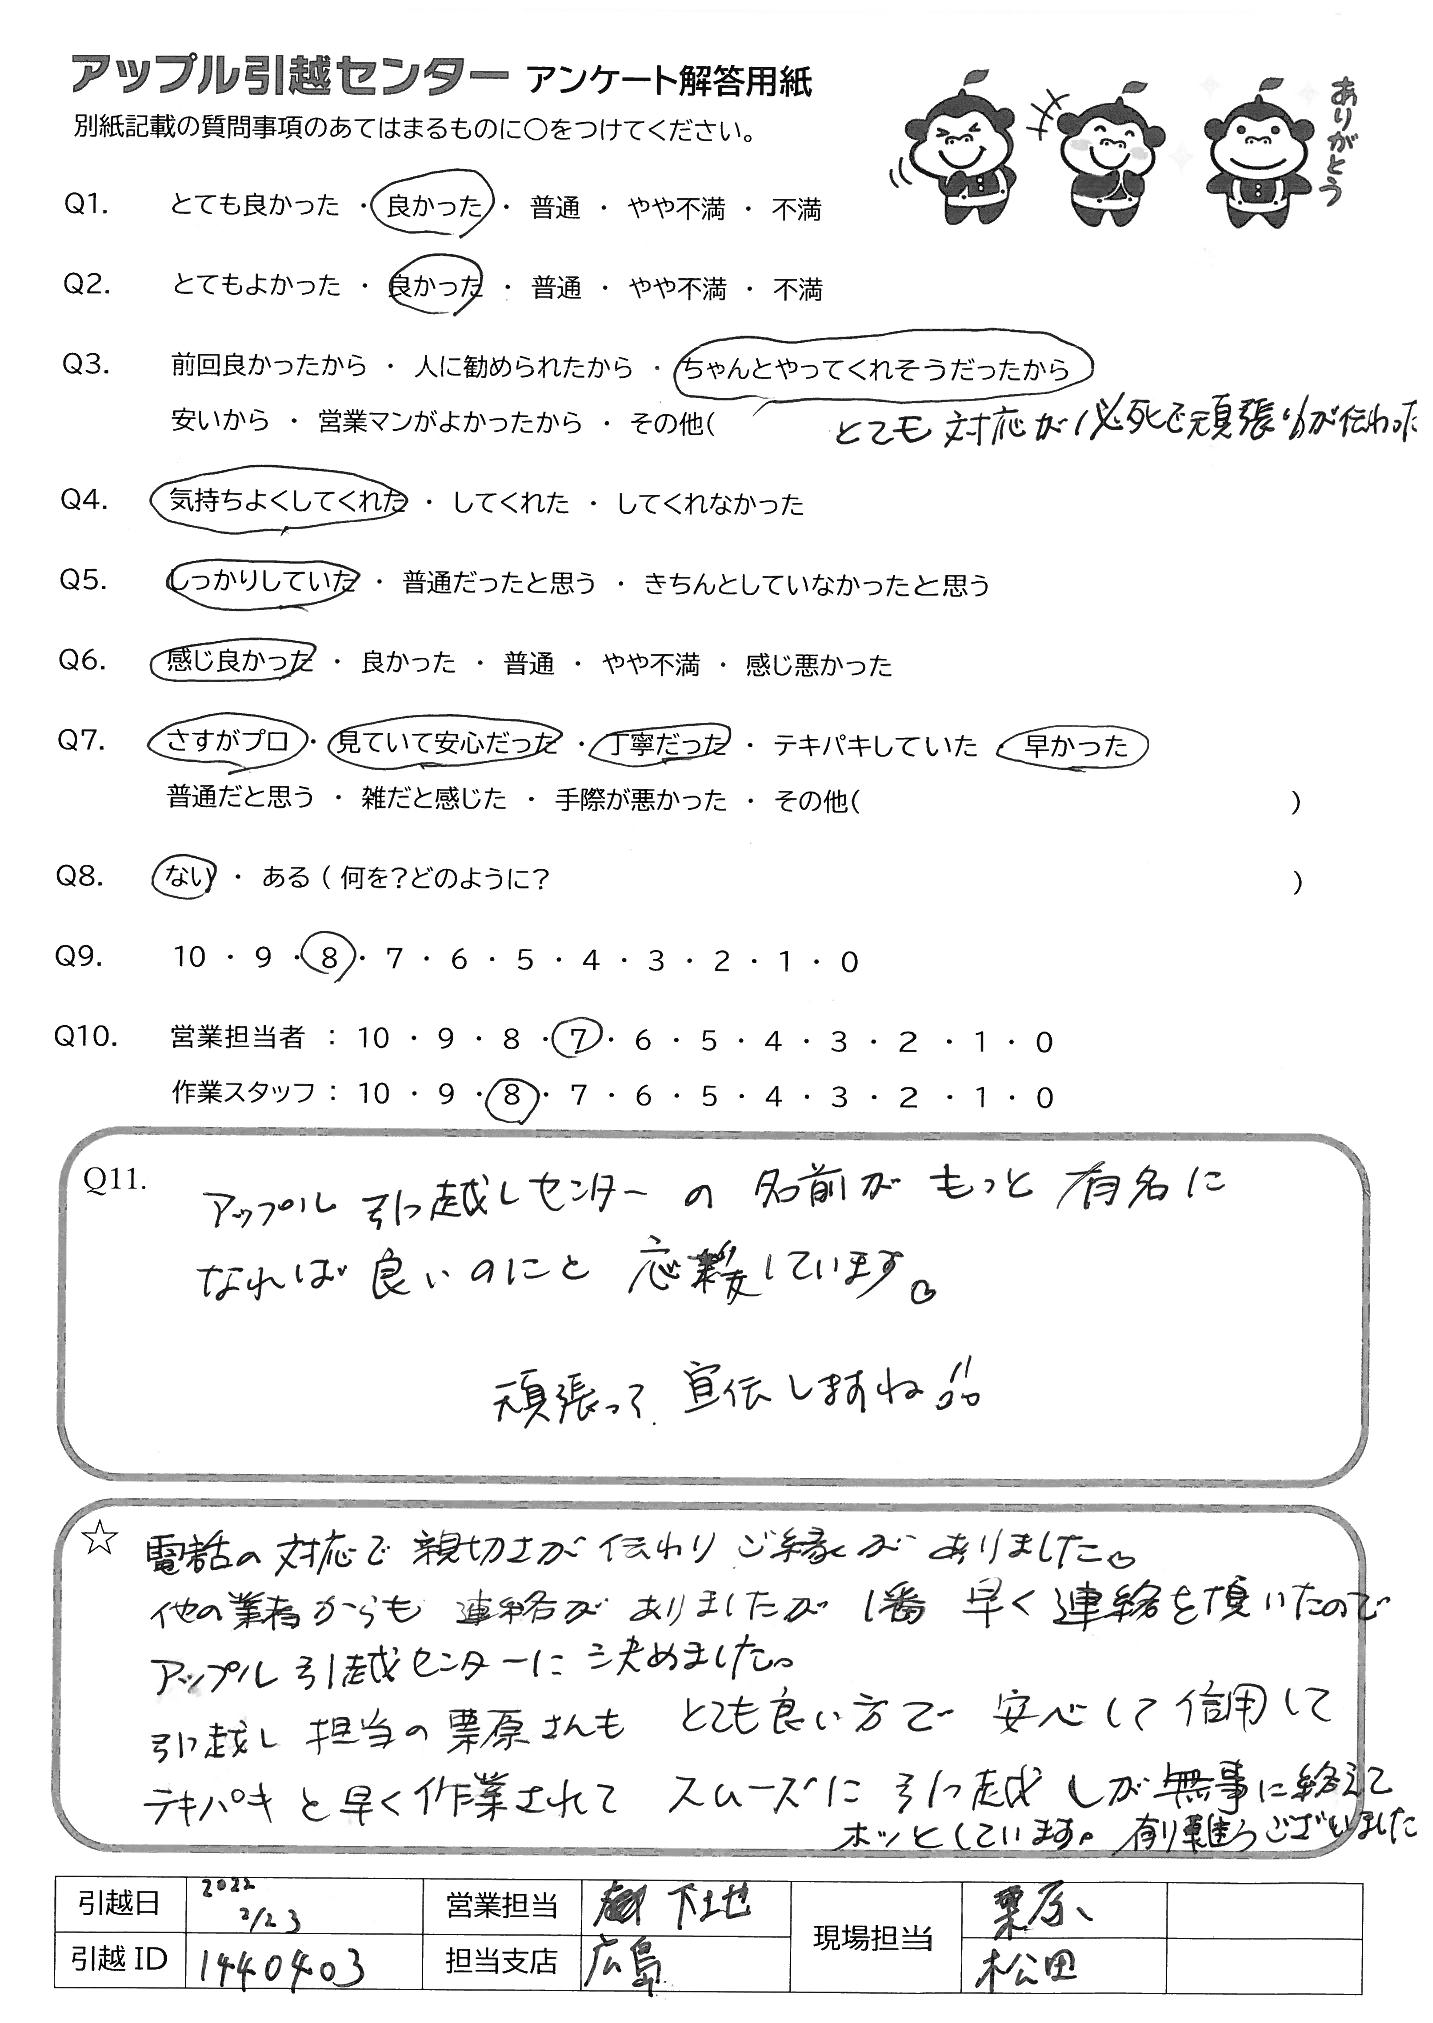 アップル引越センター アンケート解答用紙
ありがとう
別紙記載の質問事項のあてはまるものに○をつけてください。
Q1. とても良かった ・ 良かった ・ 普通 ・ やや不満 ・ 不満
Q2. とてもよかった ・ 良かった ・ 普通 ・ やや不満 ・ 不満
Q3. 前回良かったから ・ 人に勧められたから ・ ちゃんとやってくれそうだったから
安いから ・ 営業マンがよかったから ・ その他( とても対応が必死で頑張りが伝わった
Q4. 気持ちよくしてくれた ・ してくれた ・ してくれなかった
Q5. しっかりしていた ・ 普通だったと思う ・ きちんとしていなかったと思う
Q6. 感じ良かった ・ 良かった ・ 普通 ・ やや不満 ・ 感じ悪かった
Q7. さすがプロ ・ 見ていて安心だった ・ 丁寧だった ・ テキパキしていた ・ 早かった
普通だと思う ・ 雑だと感じた ・ 手際が悪かった ・ その他( )
Q8. ない ・ ある ( 何を?どのように? )
Q9. 10 ・ 9 ・ 8 ・ 7 ・ 6 ・ 5 ・ 4 ・ 3 ・ 2 ・ 1 ・ 0
Q10. 営業担当者 : 10 ・ 9 ・ 8 ・ 7 ・ 6 ・ 5 ・ 4 ・ 3 ・ 2 ・ 1 ・ 0
作業スタッフ : 10 ・ 9 ・ 8 ・ 7 ・ 6 ・ 5 ・ 4 ・ 3 ・ 2 ・ 1 ・ 0
Q11. アップル引っ越しセンターの名前がもっと有名に
なれば良いのにと応援しています。
頑張って宣伝しますね!!
☆ 電話の対応で親切さが伝わりご縁がありました。
他の業者からも連絡がありましたが1番早く連絡を頂いたので
アップル引越センターに決めました。
引っ越し担当の栗原さんもとても良い方で安心して信用して
テキパキと早く作業されてスムーズに引っ越しが無事に終えて
ホッとしています。有り難うございました
引越日 2022 2/23 営業担当 下土地 現場担当 栗原、
引越ID 1440403 担当支店 広島 松田